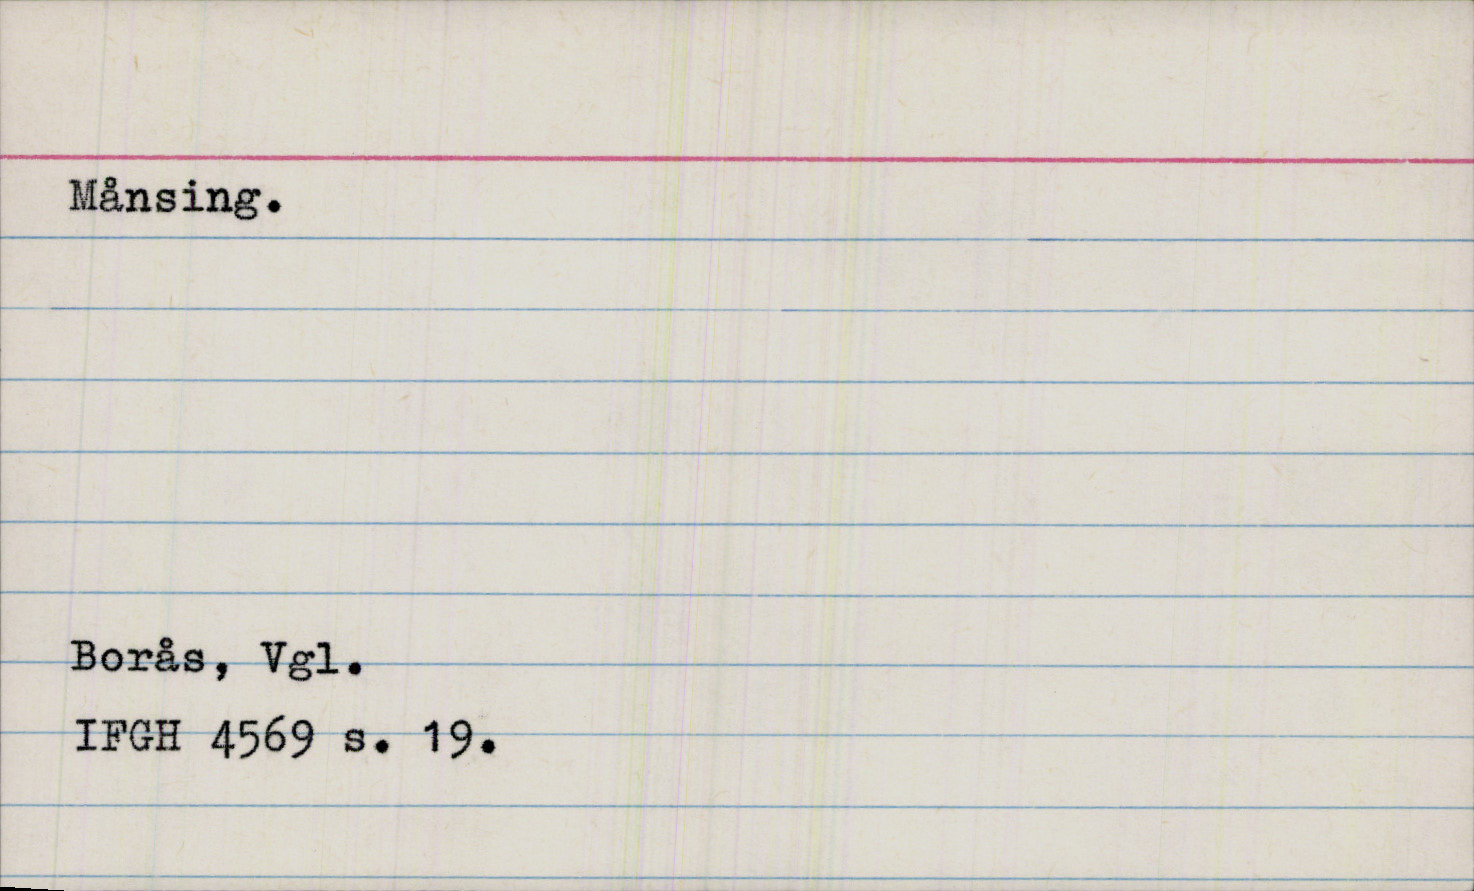 Månsing.
Borås, Vgl.
IFGH 4569 s. 19.